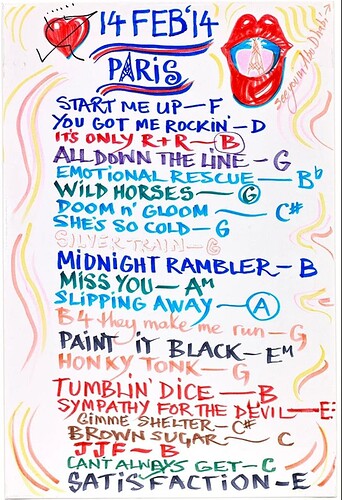 14 FEB'14
PARIS
See you in Abu Dhabi
START ME UP — F
YOU GOT ME ROCKIN' — D
IT'S ONLY R+R — B
ALL DOWN THE LINE — G
EMOTIONAL RESCUE — Bb
WILD HORSES — G
DOOM N' GLOOM — C#
SHE'S SO COLD — G
SILVER TRAIN — G
MIDNIGHT RAMBLER — B
MISS YOU — AM
SLIPPING AWAY — A
B4 they make me run — G
PAINT IT BLACK — EM
HONKY TONK — G
TUMBLIN' DICE — B
SYMPATHY FOR THE DEVIL — E
GIMME SHELTER — C#
BROWN SUGAR — C
JJF — B
CAN'T ALWAYS GET — C
SATISFACTION — E